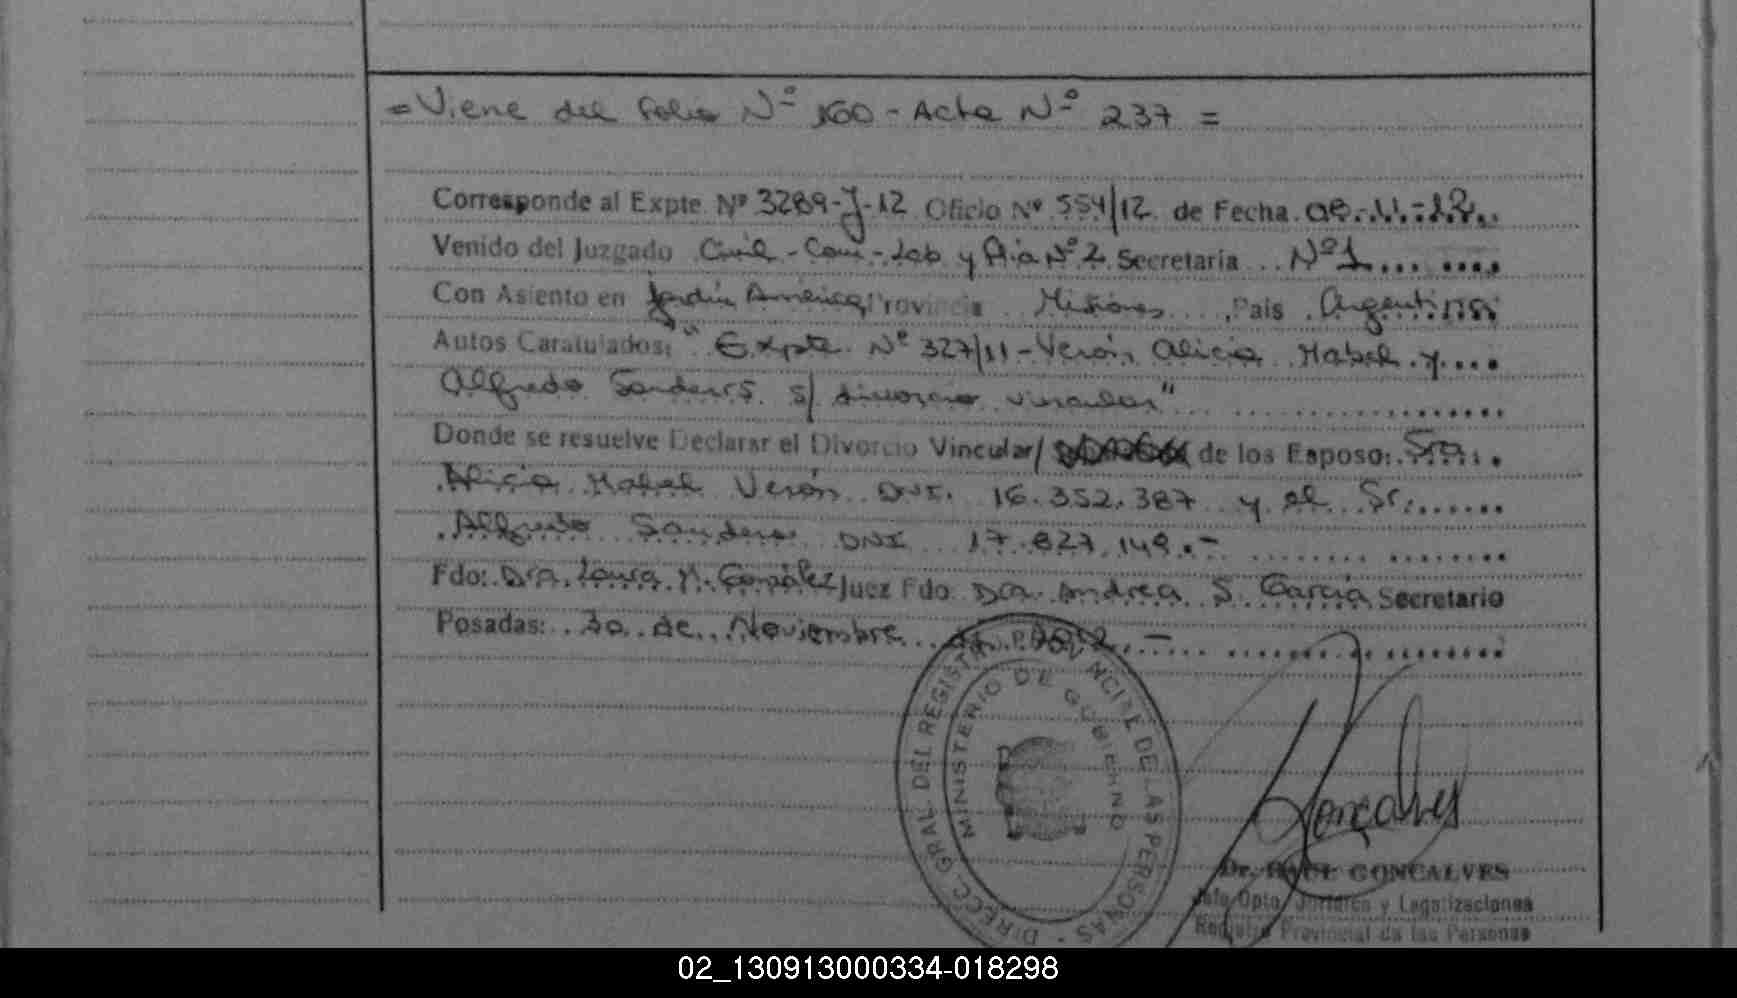 = Viene del folio Nº 160 - Acta Nº 237 =
Corresponde al Expte. Nº 3289-J-12 Oficio Nº 554/12 de Fecha 08-11-12
Venido del Juzgado Civil - Com - Lab y Flia Nº 2 Secretaria Nº 1
Con Asiento en Jardín América Provincia Misiones País Argentina
Autos Caratulados: "Expte. Nº 327/11 - Verón, Alicia Mabel y
Alfredo Sanders S/ divorcio vincular"
Donde se resuelve Declarar el Divorcio Vincular/ de los Esposo: Sra.
Alicia Mabel Verón DNI. 16.352.387 y el Sr.
Alfredo Sanders DNI 17.827.149.-
Fdo: Dra. Laura M. González Juez Fdo. Dra. Andrea S. García Secretario
Posadas: 30 de Noviembre de 2012.-
DIRECC. GRAL DEL REGISTRO PROVINCIAL DE LAS PERSONAS
MINISTERIO DE GOBIERNO
Goncalves
Dr. RAUL GONCALVES
Jefe Dpto. Jurídico y Legalizaciones
Registro Provincial de las Personas
02_130913000334-018298